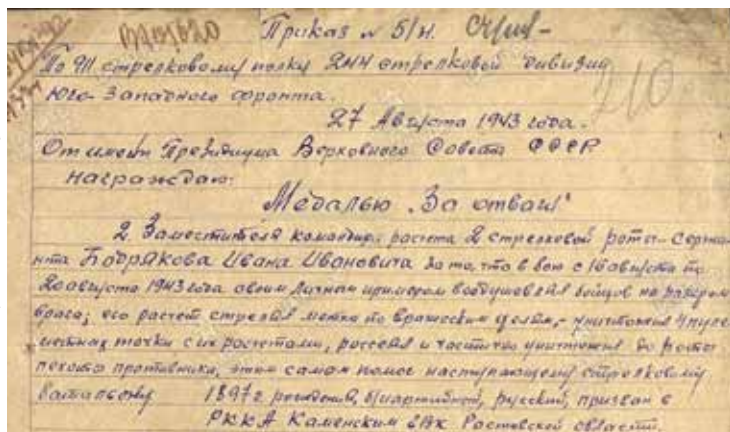 Приказ № 5/н.
По 911 стрелковому полку 244 стрелковой дивизии
Юго-Западного фронта.
210
27 Августа 1943 года.
От имени Президиума Верховного Совета СССР
награждаю:
Медалью "За отвагу"
2. Заместителя командира расчета 2 стрелковой роты - Сержа-
нта Бодрякова Ивана Ивановича за то, что в бою с 16 августа по
20 августа 1943 года своим личным примером воодушевлял бойцов на разгром
врага; его расчет стрелял метко по вражеским целям, - уничтожил 4 пуле-
метных точки с их расчетами, рассеял и частично уничтожил до роты
пехоты противника, этим самым помог наступающему стрелковому
батальону 1897 г. рождения, б/партийный, русский, призван в
РККА Каменским РВК Ростовской области.